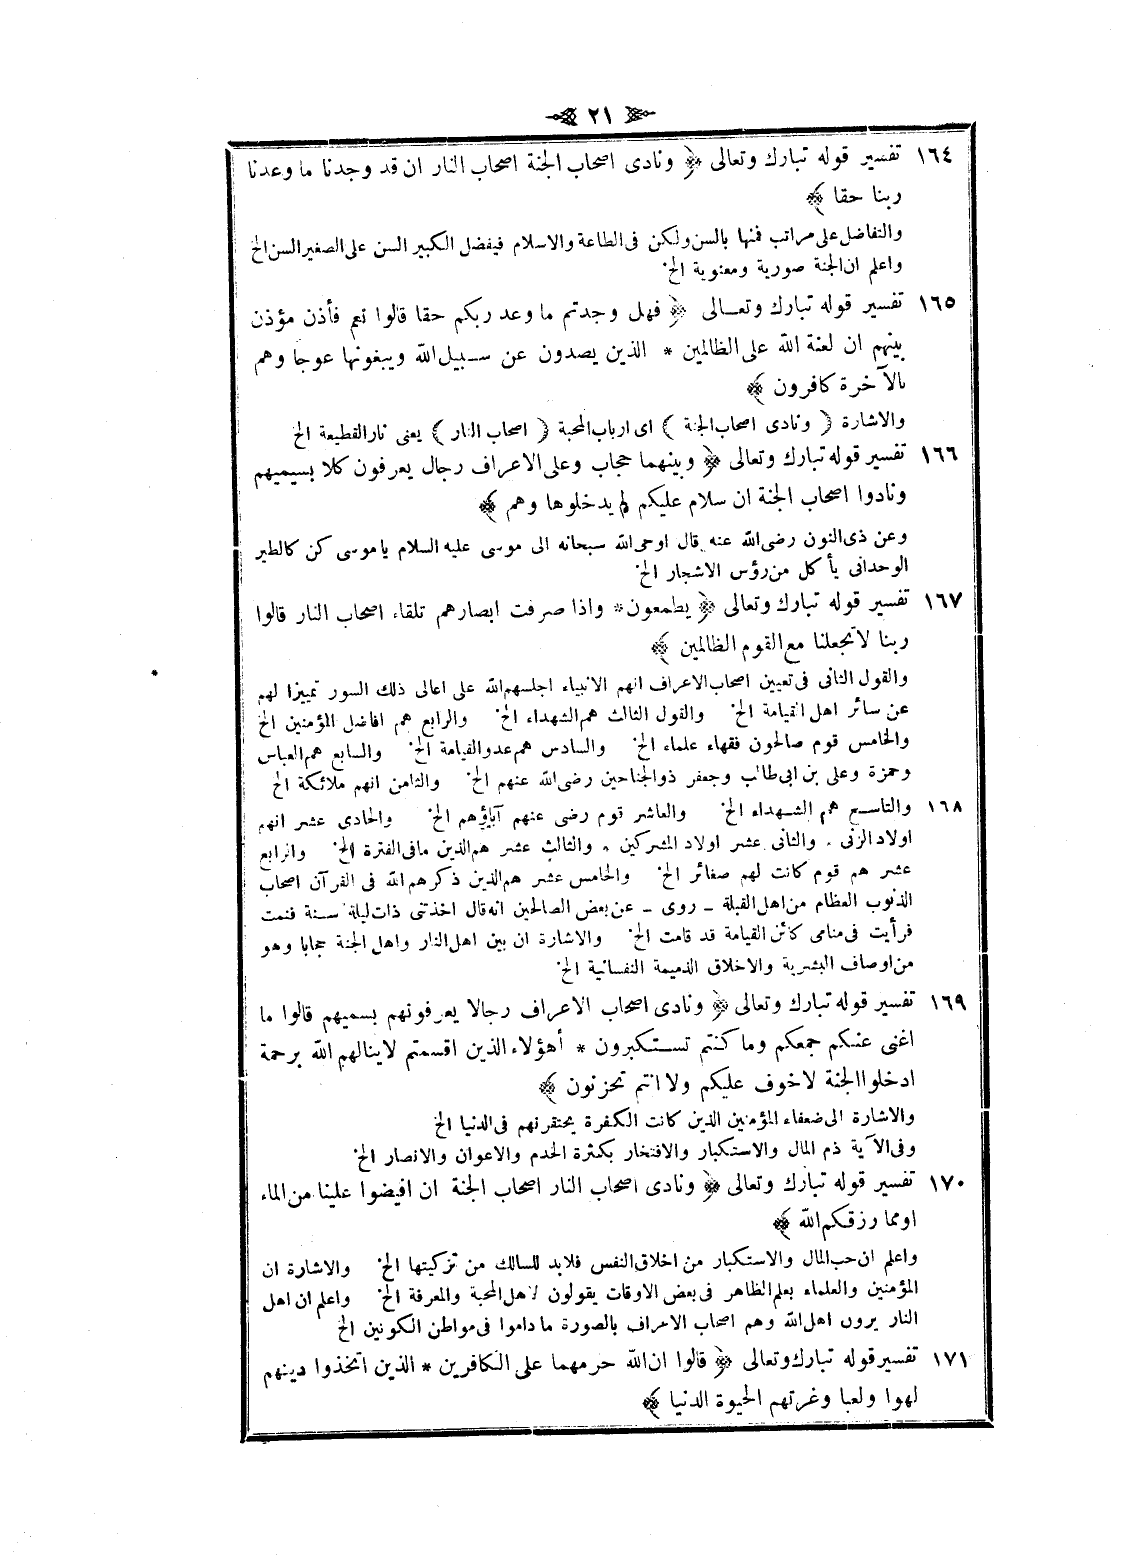 ٢١
١٦٤ تفسير قوله تبارك وتعالى ﴿ ونادى اصحاب الجنة اصحاب النار ان قد وجدنا ما وعدنا
ربنا حقا ﴾
والتفاضل على مراتب فمنها بالسن ولكن فى الطاعة والاسلام فيفضل الكبير السن على الصغير السن الخ
واعلم ان الجنة صورية ومعنوية الخ.
١٦٥ تفسير قوله تبارك وتعـالى ﴿ فهل وجدتم ما وعد ربكم حقا قالوا نعم فأذن مؤذن
بينهم ان لعنة الله على الظالمين * الذين يصدون عن سـبيل الله ويبغونها عوجا وهم
بالآخرة كافرون ﴾
والاشارة ( ونادى اصحاب الجنة ) اى ارباب المحبة ( اصحاب النار ) يعنى نار القطيعة الخ
١٦٦ تفسير قوله تبارك وتعالى ﴿ وبينهما حجاب وعلى الاعراف رجال يعرفون كلا بسيميهم
ونادوا اصحاب الجنة ان سلام عليكم لم يدخلوها وهم ﴾
وعن ذى النون رضى الله عنه قال اوحى الله سبحانه الى موسى عليه السلام ياموسى كن كالطير
الوحدانى يأكل من رؤس الاشجار الخ.
١٦٧ تفسير قوله تبارك وتعالى ﴿ يطمعون * واذا صرفت ابصارهم تلقاء اصحاب النار قالوا
ربنا لاتجعلنا مع القوم الظالمين ﴾
والقول الثانى فى تعيين اصحاب الاعراف انهم الانبياء اجلسهم الله على اعالى ذلك السور تمييزا لهم
عن سائر اهل القيامة الخ. والقول الثالث هم الشهداء الخ. والرابع هم افاضل المؤمنين الخ
والخامس قوم صالحون فقهاء علماء الخ. والسادس هم عدو القيامة الخ. والسابع هم العباس
وحمزة وعلى بن ابى طالب وجعفر ذو الجناحين رضى الله عنهم الخ. والثامن انهم ملائكة الخ
١٦٨ والتاسـع هم الشـهداء الخ. والعاشر قوم رضى عنهم آباؤهم الخ. والحادى عشر انهم
اولاد الزنى . والثانى عشر اولاد المشركين . والثالث عشر هم الذين ماتوا فى الفترة الخ. والرابع
عشر هم قوم كانت لهم صغائر الخ. والخامس عشر هم الذين ذكرهم الله فى القرآن اصحاب
الذنوب العظام من اهل القبلة ــ روى ــ عن بعض الصالحين انه قال اخذتنى ذات ليلة سـنة فنمت
فرأيت فى منامى كائن القيامة قد قامت الخ. والاشارة ان بين اهل النار واهل الجنة حجابا وهو
من اوصاف البشرية والاخلاق الذميمة النفسانية الخ.
١٦٩ تفسير قوله تبارك وتعالى ﴿ ونادى اصحاب الاعراف رجالا يعرفونهم بسميهم قالوا ما
اغنى عنكم جمعكم وما كنتم تسـتكبرون * أهؤلاء الذين اقسمتم لاينالهم الله برحمة
ادخلوا الجنة لاخوف عليكم ولا انتم تحزنون ﴾
والاشارة الى ضعفاء المؤمنين الذين كانت الكفرة يحتقرنهم فى الدنيا الخ
وفى الآية ذم المال والاستكبار والافتخار بكثرة الخدم والاعوان والانصار الخ.
١٧٠ تفسير قوله تبارك وتعالى ﴿ ونادى اصحاب النار اصحاب الجنة ان افيضوا علينا من الماء
اومما رزقكم الله ﴾
واعلم ان حب المال والاستكبار من اخلاق النفس فلابد للسالك من تزكيتها الخ. والاشارة ان
المؤمنين والعلماء بعلم الظاهر فى بعض الاوقات يقولون لاهل المحبة والمعرفة الخ. واعلم ان اهل
النار يرون اهل الله وهم اصحاب الاعراف بالصورة ماداموا فى مواطن الكونين الخ
١٧١ تفسير قوله تبارك وتعالى ﴿ قالوا ان الله حرمهما على الكافرين * الذين اتخذوا دينهم
لهوا ولعبا وغرتهم الحيوة الدنيا ﴾